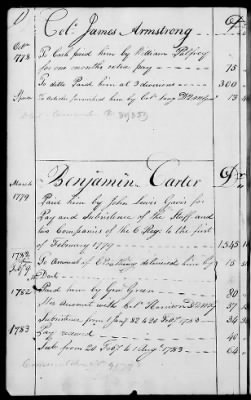 Col. James Armstrong Dr
To Cash paid him by William Palfrey
for one months extra pay 75
To ditto Paid him at 3 diverses 300
To Articles furnished him by Col. 13
Benjamin Carter Dr
March
1779
Paid him by John Lewis Gervais for
Pay and Subsistence of the Staff and
two Companies of the 6 Reg. to the first
of February 1779 1345
To Amount of Cloathing delivered him by 15
1782 Paid him by Gen Green 80
37
Subsistence from 1 Jany 82 to 20 Feby 1783 34
1783 Pay received 40
Sub. from 20 Feby to 1 Augt 1783 64